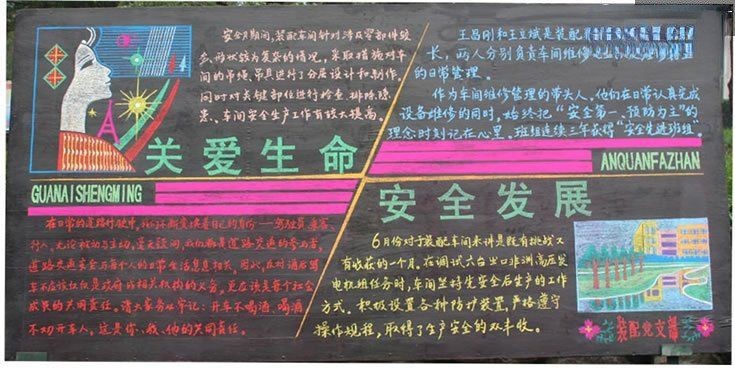 安全月期间,装配车间针对涉及零部件较
多、形状较为复杂的情况,采取措施对车
间的吊绳、吊具进行了分层设计和制作,
同时对关键部位进行检查、排除隐
患、车间安全生产工作有较大提高。
王昌刚和王立斌是装配
长,两人分别负责车间维修
的日常管理。
作为车间维修管理的带头人,他们在日常认真完成
设备维修的同时,始终把“安全第一、预防为主”的
理念时刻记在心里。班组连续三年获得“安全先进班组”
关爱生命
GUANAISHENGMING
ANQUANFAZHAN
安全发展
在日常的道路行驶中,我们不断变换着自己的身份——驾驶员、乘客、
行人,无论被动与主动,毫无疑问,我们都是道路交通的参与者,
道路交通安全与每个人的日常生活息息相关,因此,反对酒后驾
车不应该仅仅是政府或相关机构的义务,更应该是每个社会
成员的共同责任。请大家务必牢记:开车不喝酒、喝酒
不开车。这是你、我、他的共同责任。
6月份对于装配车间来讲是既有挑战又
有收获的一个月。在调试六台出口非洲高压发
电机组任务时,车间坚持先安全后生产的工作
方式。积极设置各种防护装置,严格遵守
操作规程,取得了生产安全的双丰收。
装配党支部